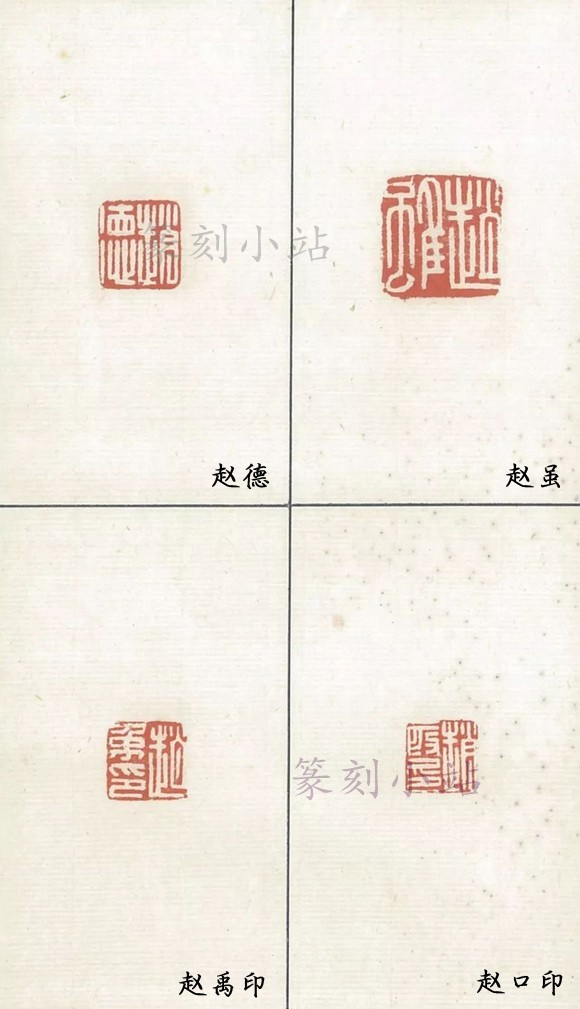 篆刻小站
赵德
赵虽
篆刻小站
赵禹印
赵口印